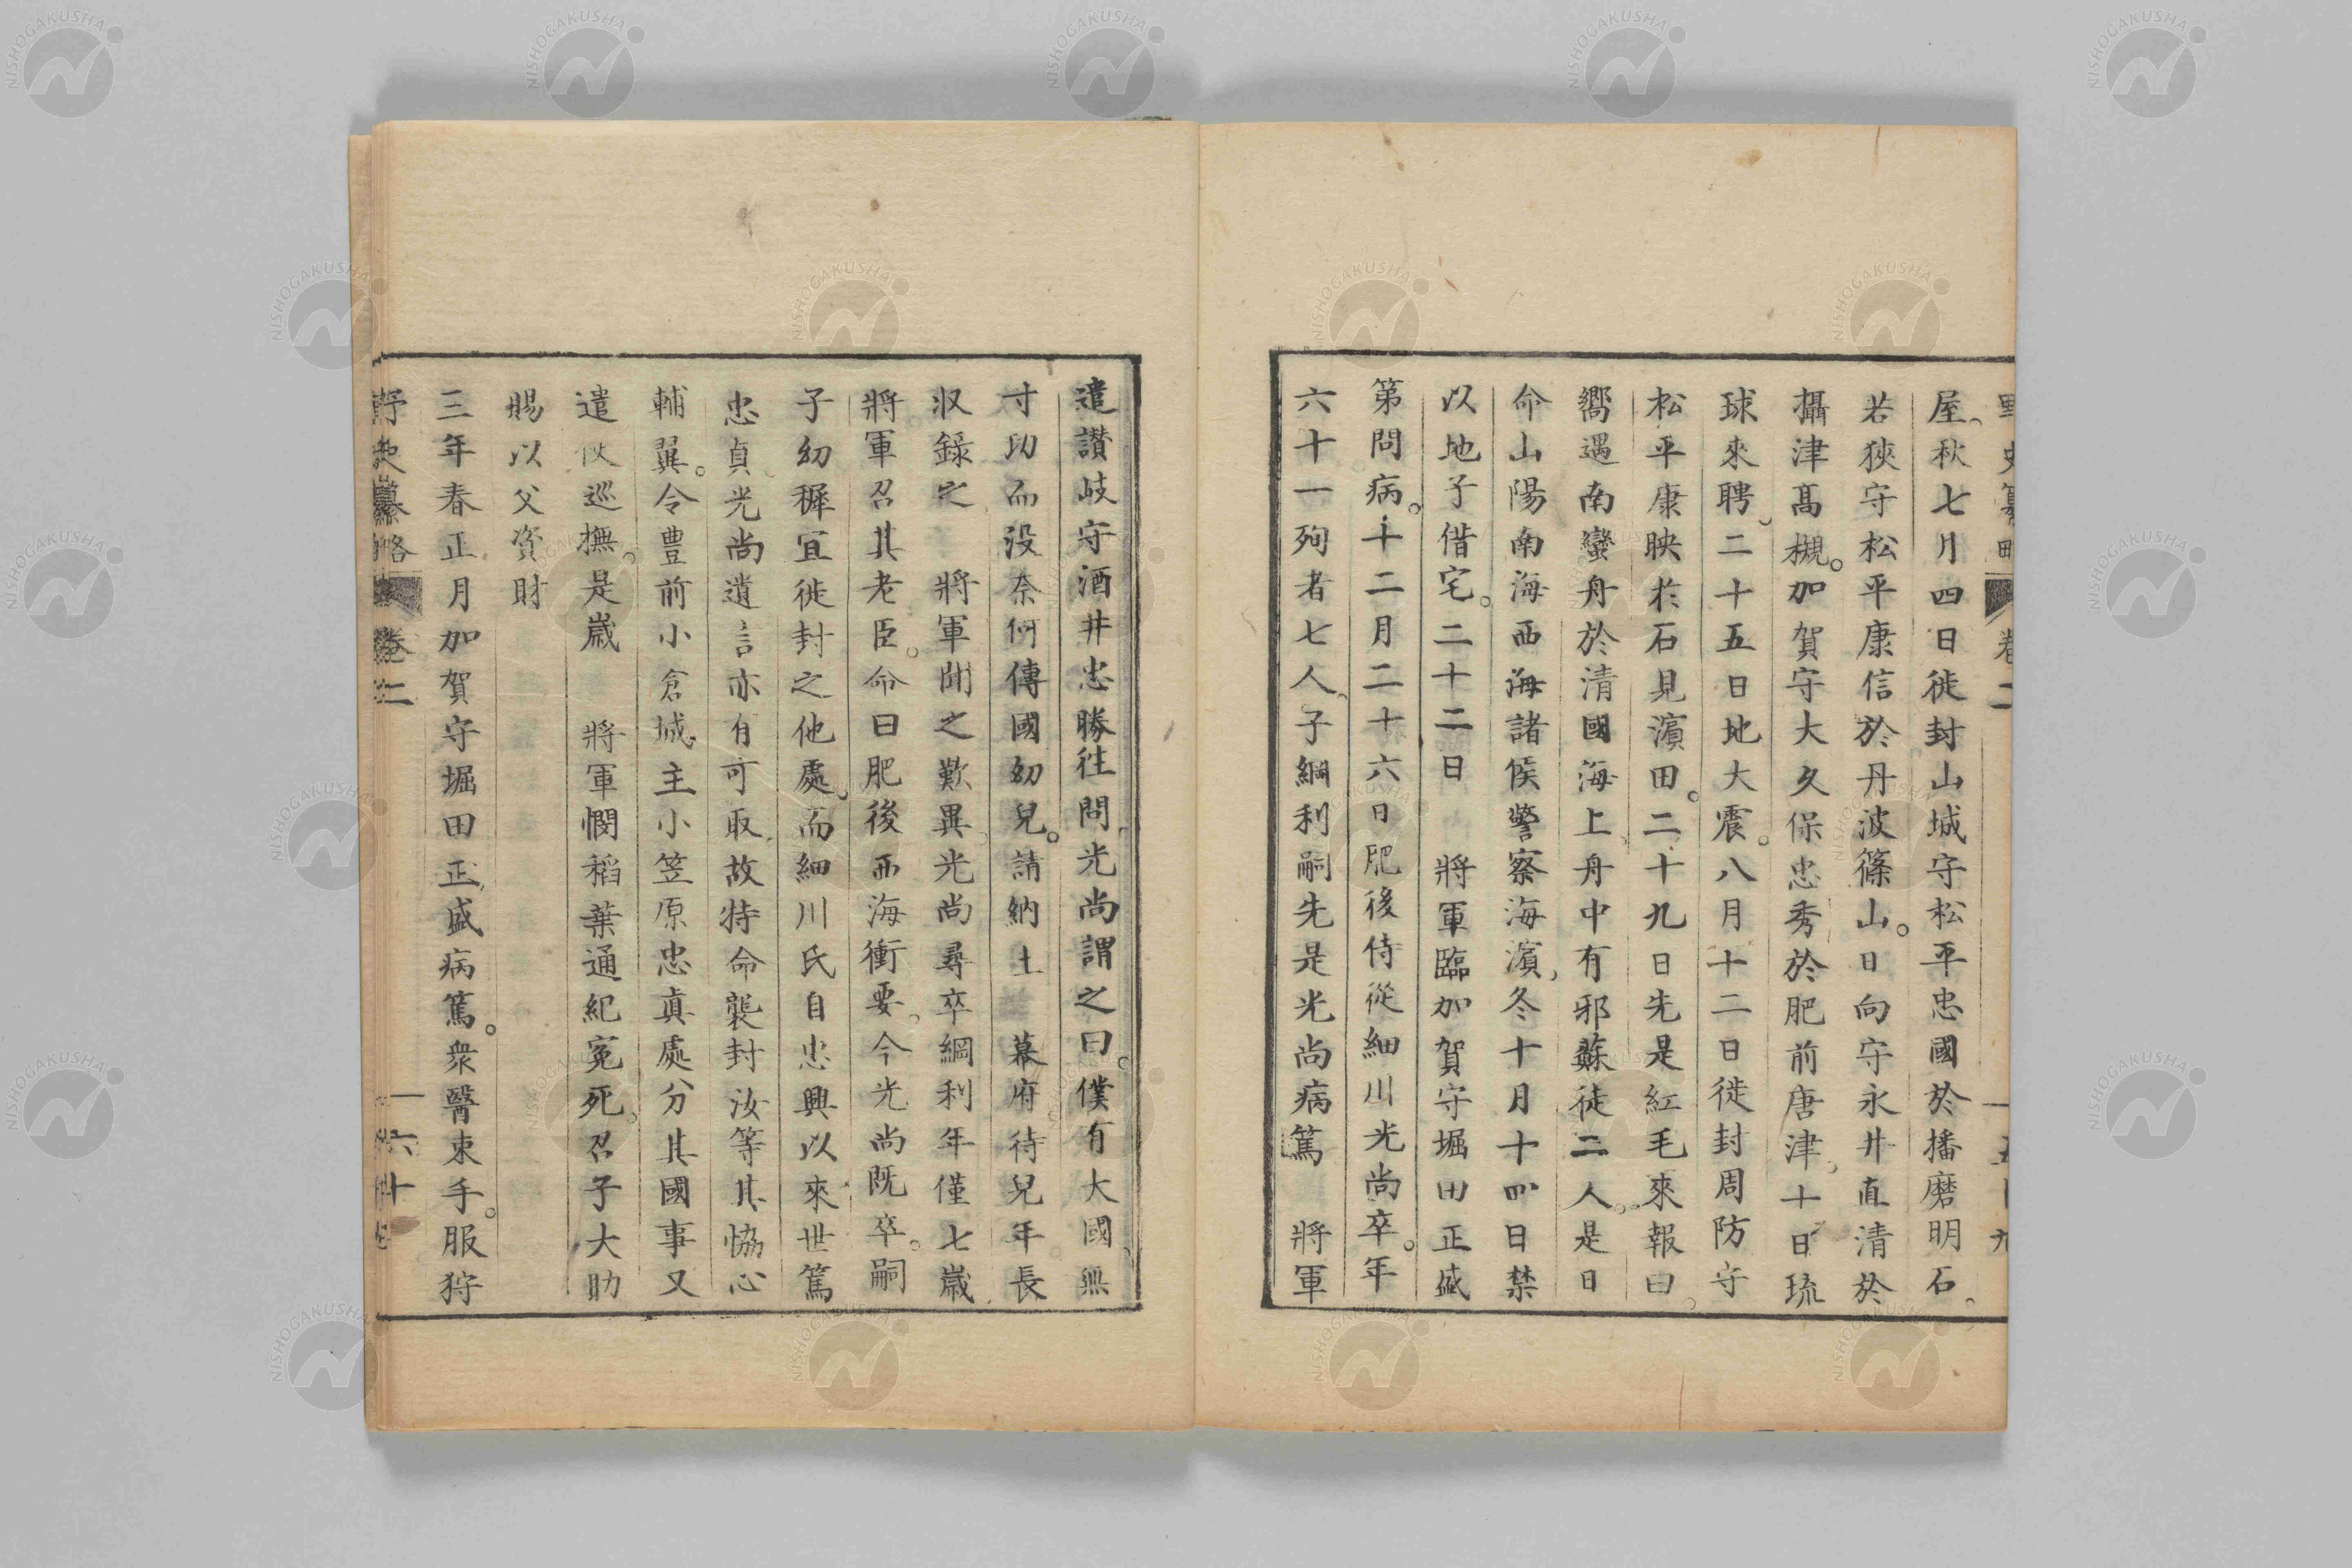 野史纂略 卷二 一五十九
屋、秋七月四日徙封山城守松平忠國於播磨明石。
若狹守松平康信於丹波篠山。日向守永井直清於
攝津髙槻。加賀守大久保忠秀於肥前唐津、十日琉
球來聘、二十五日地大震。八月十二日徙封周防守
松平康映於石見濵田。二十九日先是紅毛來報曰、
嚮遇南蠻舟於清國海上、舟中有邪蘇徒二人。是日
命山陽南海西海諸侯警察海濵、冬十月十四日禁
以地子借宅。二十二日 將軍臨加賀守堀田正盛
第問病。十二月二十六日肥後侍從細川光尚卒。年
六十一殉者七人、子綱利嗣先是光尚病篤 將軍
遣讃岐守酒井忠勝往問光尚謂之曰、僕有大國、無
寸功而没奈何傳國幼兒。請納土 幕府待兒年長
収錄之、 將軍聞之歎異光尚尋卒綱利年僅七歳
將軍召其老臣。命曰肥後西海衝要、今光尚既卒。嗣
子幼穉宜徙封之他處、而細川氏自忠興以來世篤
忠貞、光尚遺言亦有可取、故特命襲封汝等其協心
輔翼。令豊前小倉城主小笠原忠眞處分其國事又
遣使巡撫。是歳 將軍憫稻葉通紀寃死、召子大助
賜以父資財
三年春正月加賀守堀田正盛病篤。衆醫束手。服狩
野史纂略 卷二 一六十